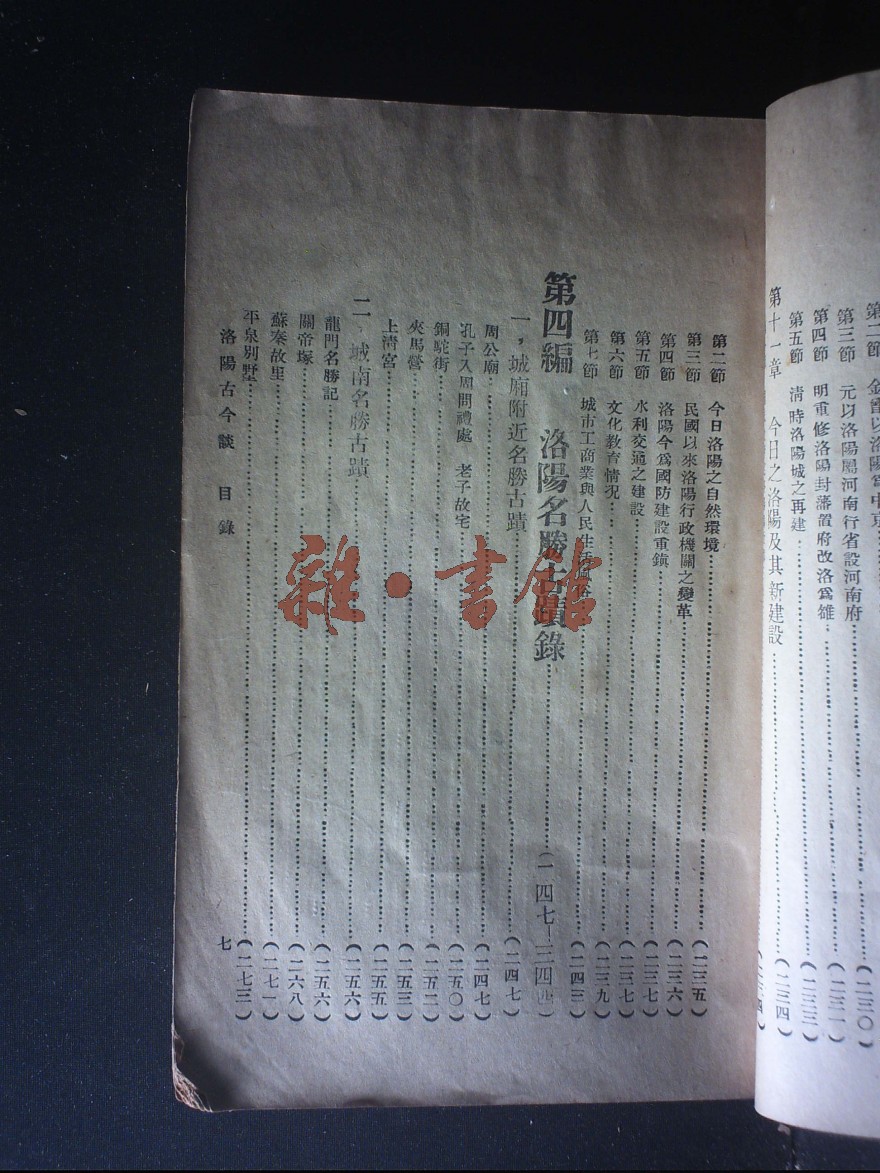 第三節　元以洛陽屬河南行省設河南府(二三一)
第四節　明重修洛陽封藩置府改洛爲雄(二三二)
第五節　清時洛陽城之再建(二三三)
第十一章　今日之洛陽及其新建設(二三四)
第二節　今日洛陽之自然環境(二三五)
第三節　民國以來洛陽行政機關之變革
第四節　洛陽今爲國防建設重鎮(二三六)
第五節　水利交通之建設(二三七)
第六節　文化教育情况(二三九)
第七節　城市工商業與人民生活風俗(二四三)
第四編　洛陽名勝古蹟錄(一四七—三四四)
一，城廂附近名勝古蹟(二四七)
周公廟(二四七)
孔子入周問禮處　老子故宅(二五〇)
銅駝街(二五二)
夾馬營(二五三)
上清宮(二五五)
二，城南名勝古蹟(二五六)
龍門名勝記(二五六)
關帝塚(二六八)
蘇秦故里(二七一)
平泉別墅(二七三)
洛陽古今談　目錄
七
雜·書館